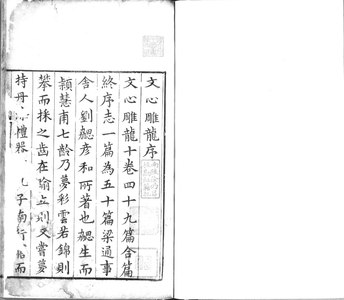 文心雕龍序
文心雕龍十卷四十九篇合篇
終序志一篇為五十篇梁通事
舍人劉勰彥和所著也勰生而
穎慧甫七齡乃夢彩雲若錦則
攀而採之齒在踰立則又嘗夢
持丹 禮器 子南行 而